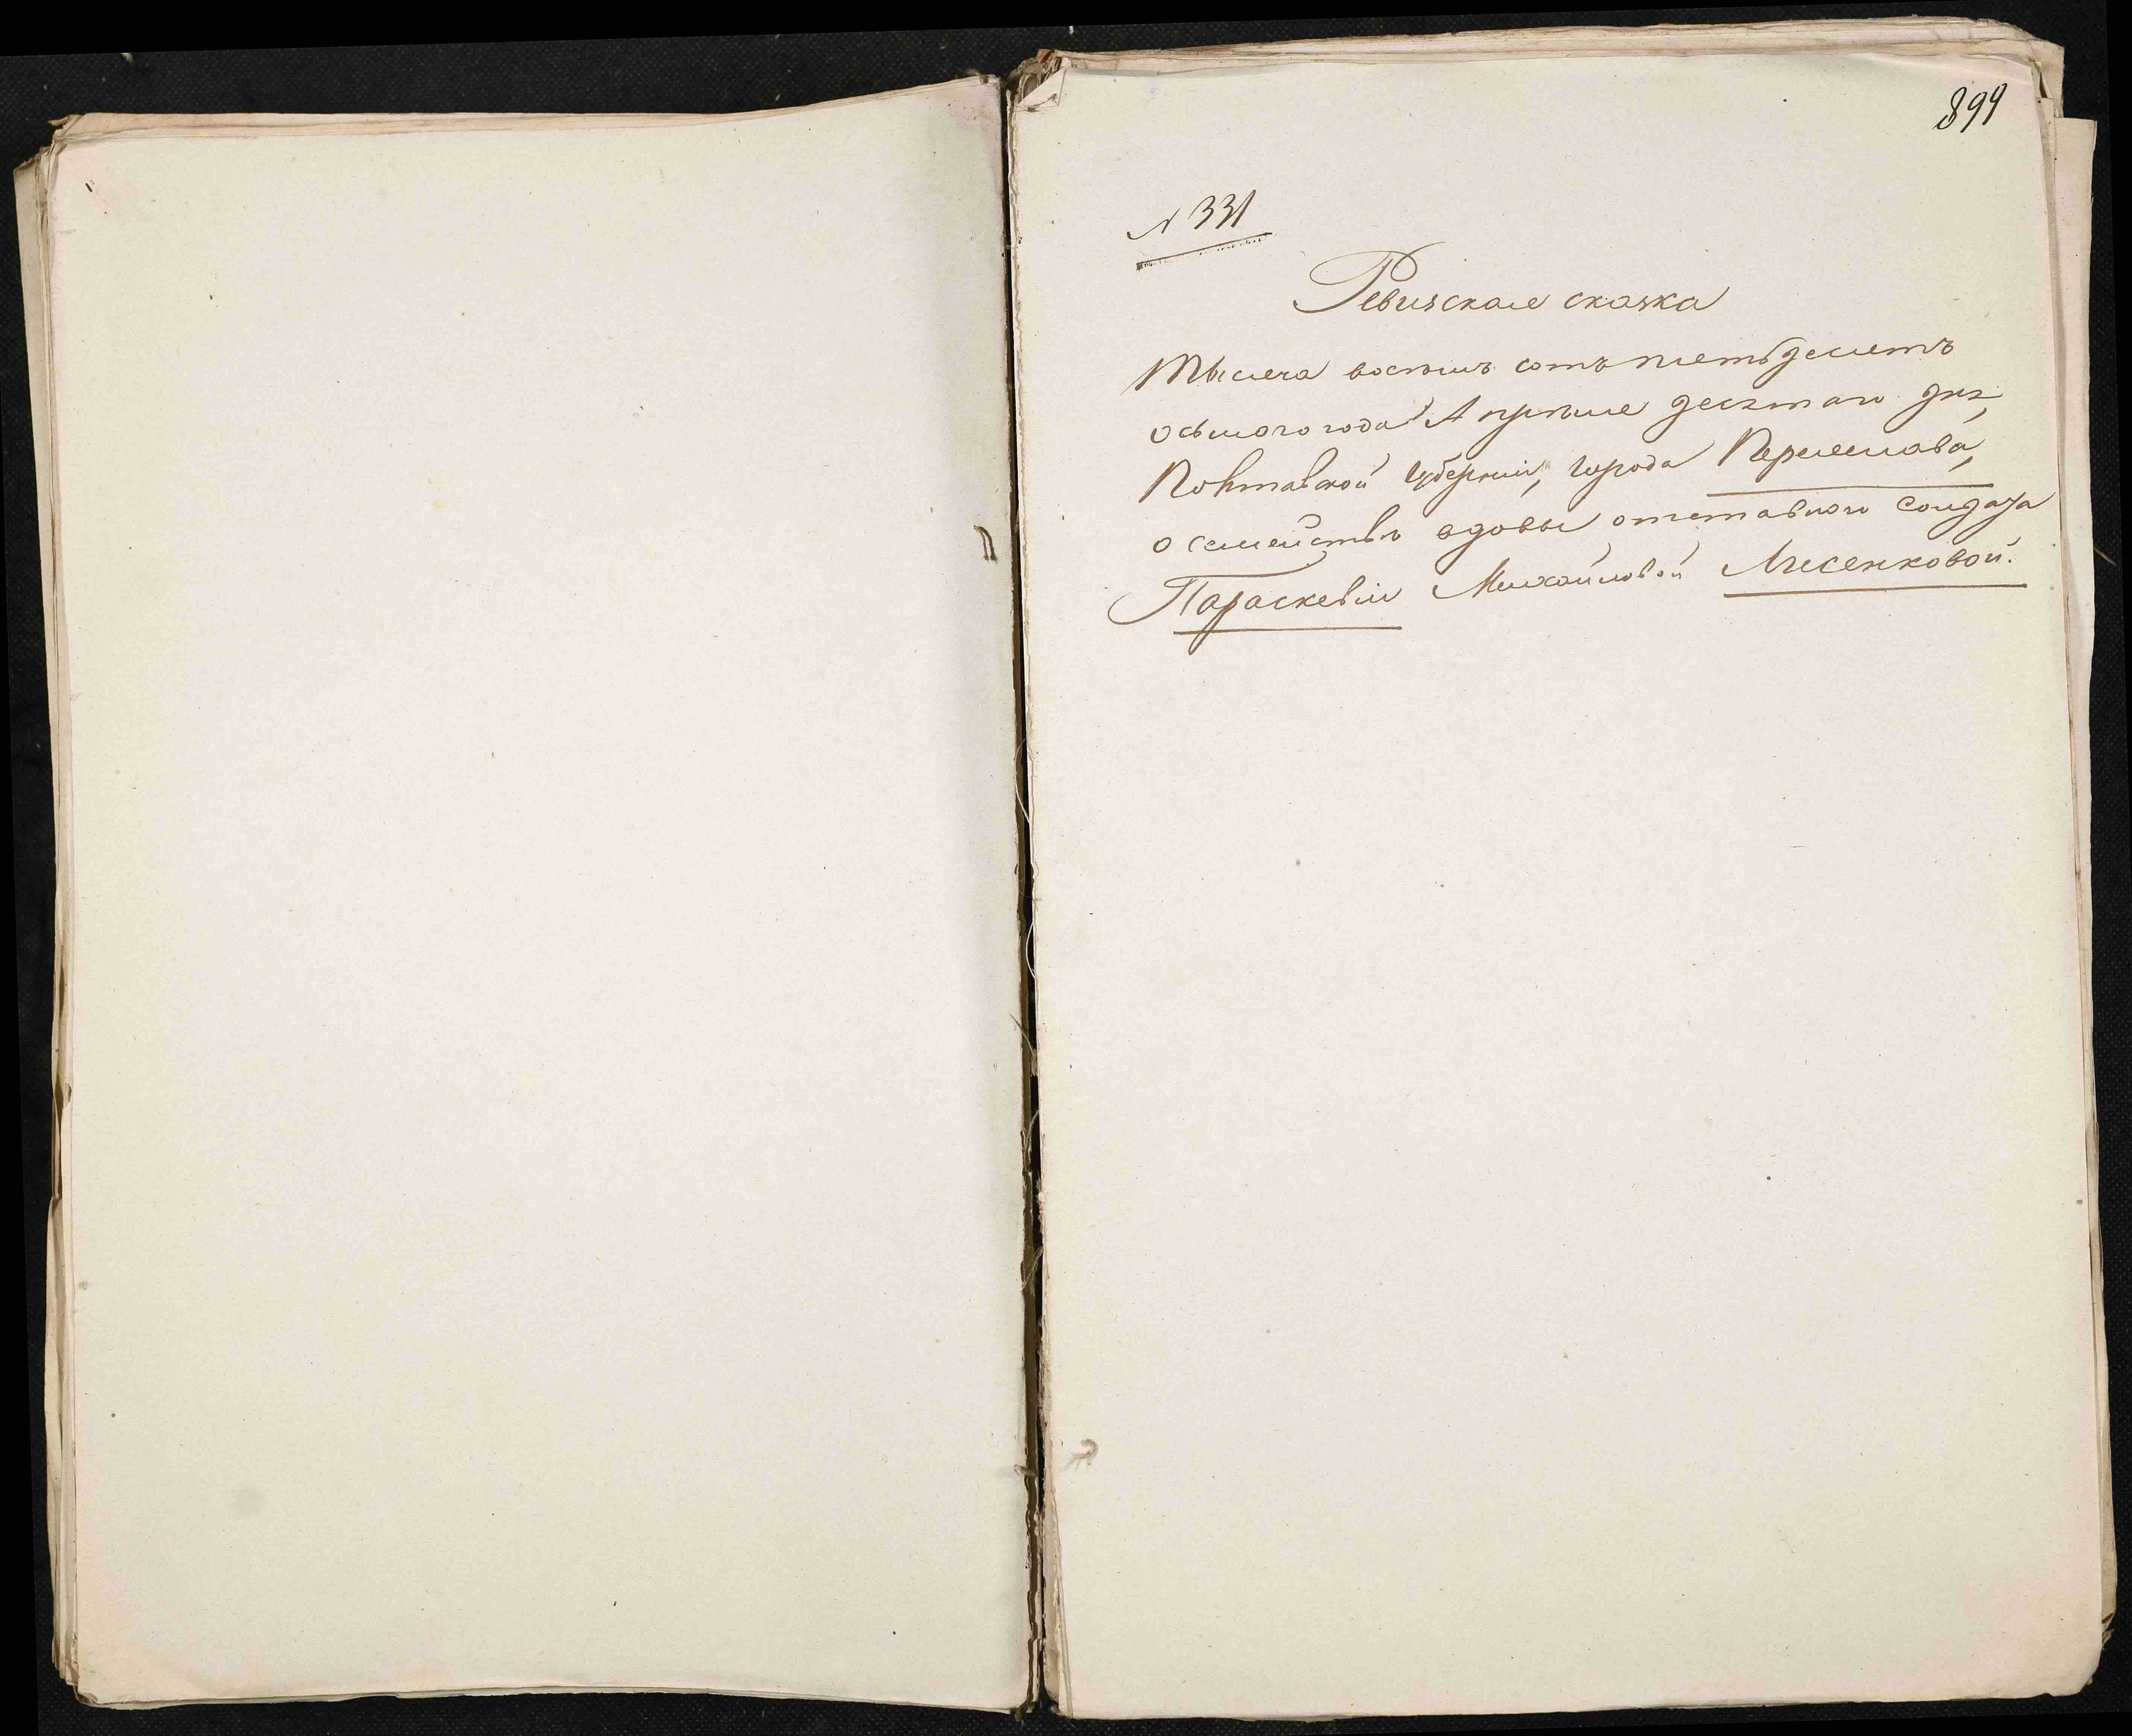 899
№ 331
Ревизская сказка
Тысяча восемь сотъ пятьдесятъ
осьмого года Апреля десятаго дня,
Полтавской Губерніи, города Переяслава,
о семействѣ вдовы отставного солдата
Параскевіи Михайловой Лысенковой.